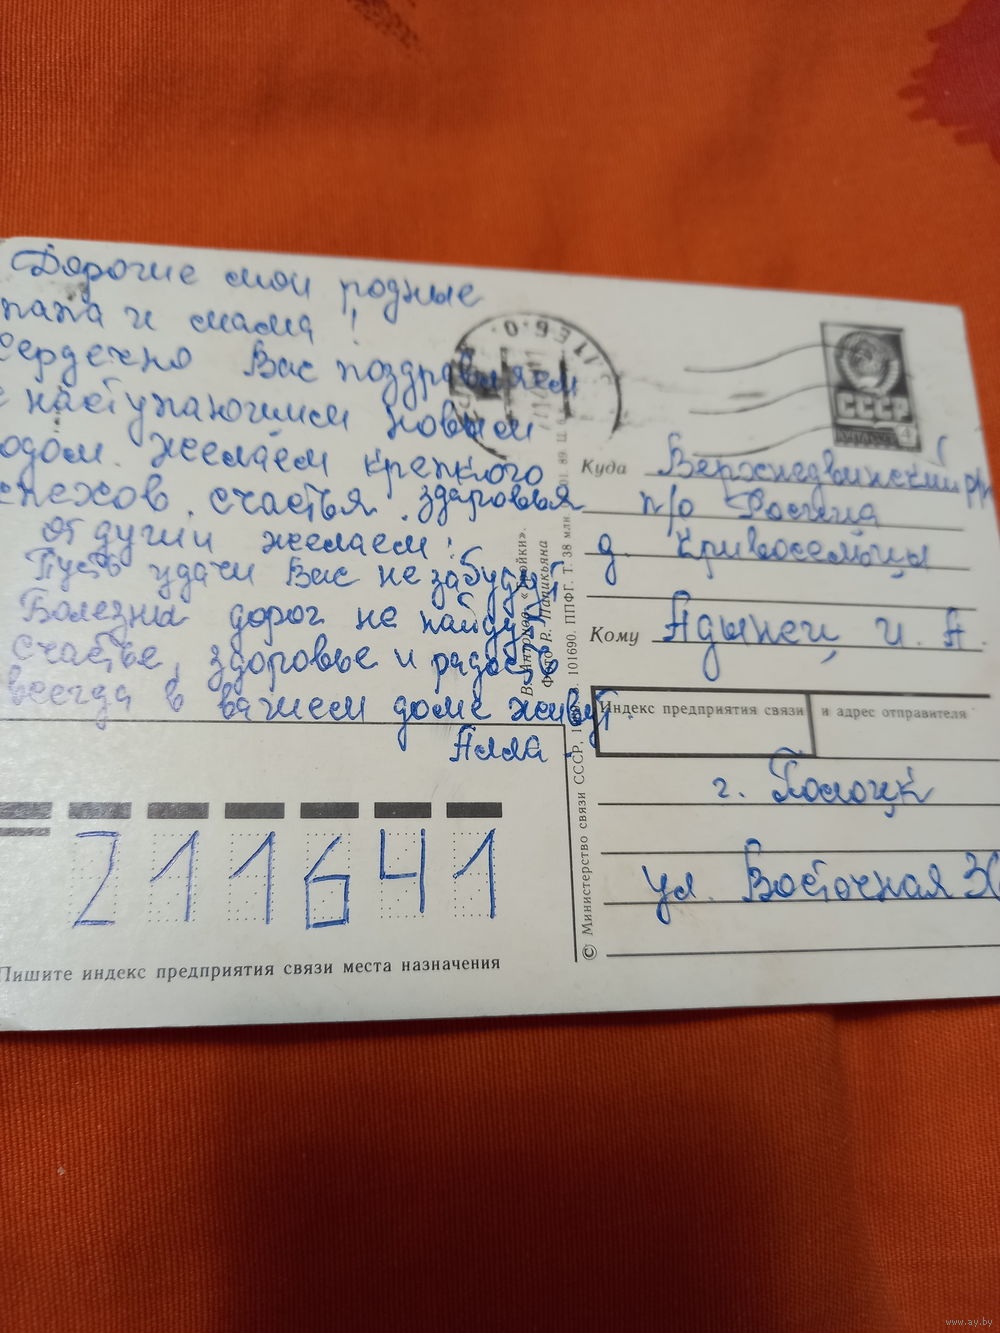 Дорогие мои родные
папа и мама!
Сердечно Вас поздравляем
с наступающим Новым
одом. Желаем крепкого
спехов, счастья, здоровья
от души желаем!
Пусть удачи Вас не забудут
Болезни дорог не найдут
Счастье, здоровье и радость
всегда в вашем доме живут.
Алла.
211641
Пишите индекс предприятия связи места назначения
СССР
4
Куда Верхнедвинский р/н
п/о Росица
д. Кривосельцы
Кому Адынец, и. А.
Индекс предприятия связи и адрес отправителя
г. Полоцк
ул. Восточная
«Тройки».
© Министерство связи СССР, 101690. ППФГ. Т. 38 млн.
www.ay.by